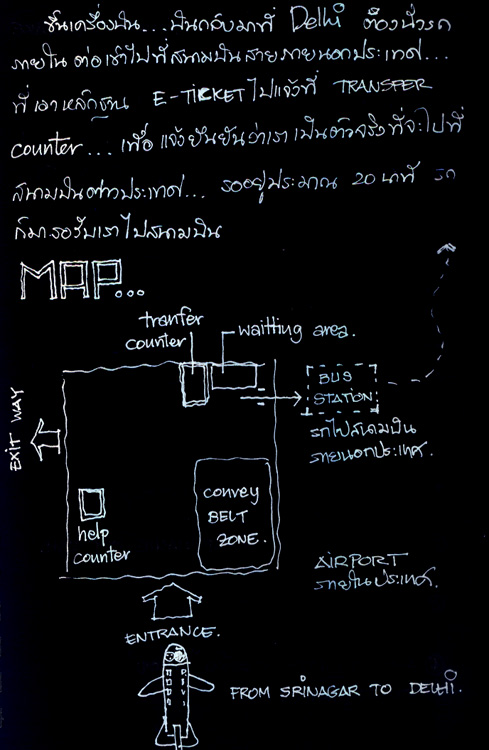 ขึ้นเครื่องบิน...บินกลับมาที่ Delhi ต้องนั่งรถ
ภายใน ต่อเข้าไปที่สนามบินสายภายนอกประเทศ...
ที่เอาหลักฐาน E-TICKET ไปแจ้งที่ TRANSFER
counter... เพื่อ แจ้งยืนยันว่าเรา เป็นตัวจริงที่จะไปที่
สนามบินต่างประเทศ... รออยู่ประมาณ 20 นาที รถ
ก็มารอรับเราไปสนามบิน
MAP...
tranfer
counter
waitting area.
BUS
STATION
รถไปสนามบิน
ภายนอกประเทศ.
EXIT WAY
convey
BELT
ZONE.
help
counter
AIRPORT
ภายในประเทศ.
ENTRANCE.
FROM SRINAGAR TO DELHI.